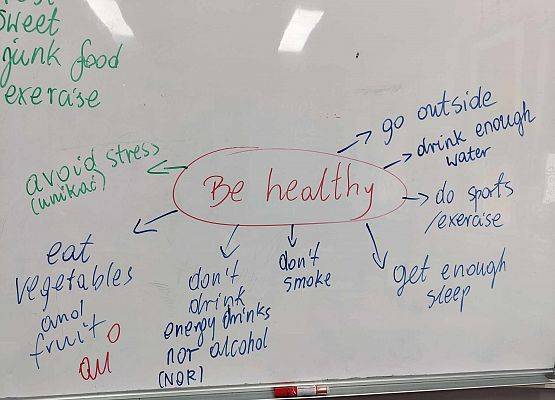 sweet
junk food
exercise
Be healthy
go outside
drink enough
water
do sports
/exercise
get enough
sleep
don't
smoke
don't
drink
energy drinks
nor alcohol
(NOR)
eat
vegetables
and
fruit
O
au
avoid stress
(unikać)